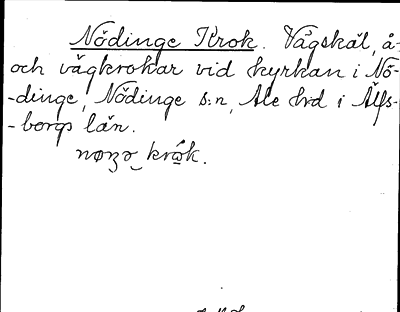 Nödinge Krok. Vägskäl, å-
och vägkrokar vid kyrkan i Nö-
-dinge, Nödinge s:n, Ale hrd i Älfs-
-borgs län.